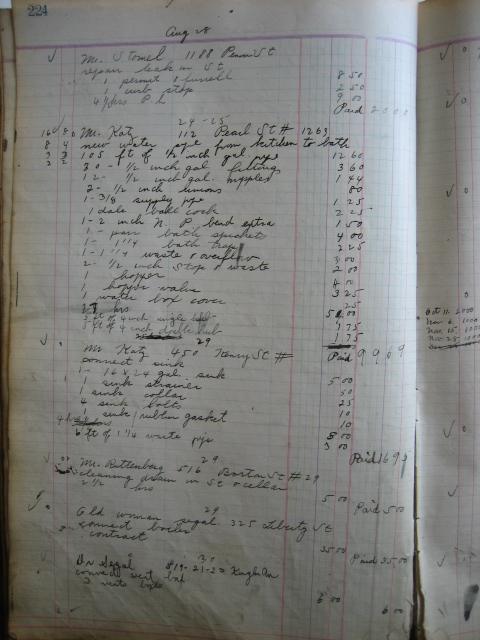 224
Aug 28
Mr. Stomel 1188 Penn St
repair leak in St.
1 permit & ferrell 8 50
1 curb stop 2 50
4 1/2 hrs P L 9 00
Paid 20 00
24-25
Mr. Katz 112 Pearl St # 1263
new water pipe from kitchen to bath
105 ft of 1/2 inch gal pipe 12 60
30 - 1/2 inch gal fittings 3 60
12 - 1/2 inch gal. nipples 1 44
2 - 1/2 inch unions 80
1 - 3/8 supply pipe 1 25
1 ball cock 2 25
1 - 2 inch N. P. bend extra 1 50
1 - pair bath spicket 4 00
1 - 1 1/4 bath trap 2 25
1 - 1 1/4 waste & overflow 3 00
2 - 1/2 inch stop & waste 2 00
1 hopper 4 00
1 hopper valve 3 25
1 water box cover 25
27 hrs 54 00
5 ft of 4 inch single hub 1 75
5 ft of 4 inch double hub 1 75
Paid 99 09
29
Mr. Katz 450 Henry St #
connect sink
1 - 16 x 24 gal. sink 5 00
1 sink strainer 50
1 sink collar 25
4 sink bolts 10
1 sink rubber gasket 10
4 hrs 8 00
6 ft of 1 1/4 waste pipe 3 00
Paid 16 95
29
Mr. Ruttenberg 516 Boston St # 29
cleaning drain in St & cellar
2 1/2 hrs 5 00
Paid 5 00
29
Old woman Segal 325 Liberty St
connect boiler
contract 35 00
Paid 35 00
Segal 819-21-23 Kaighn
connect vent
3 vents
6 00
6 00
Oct 11 1000
Nov 6 1000
Nov 15 1000
Nov 25 1000